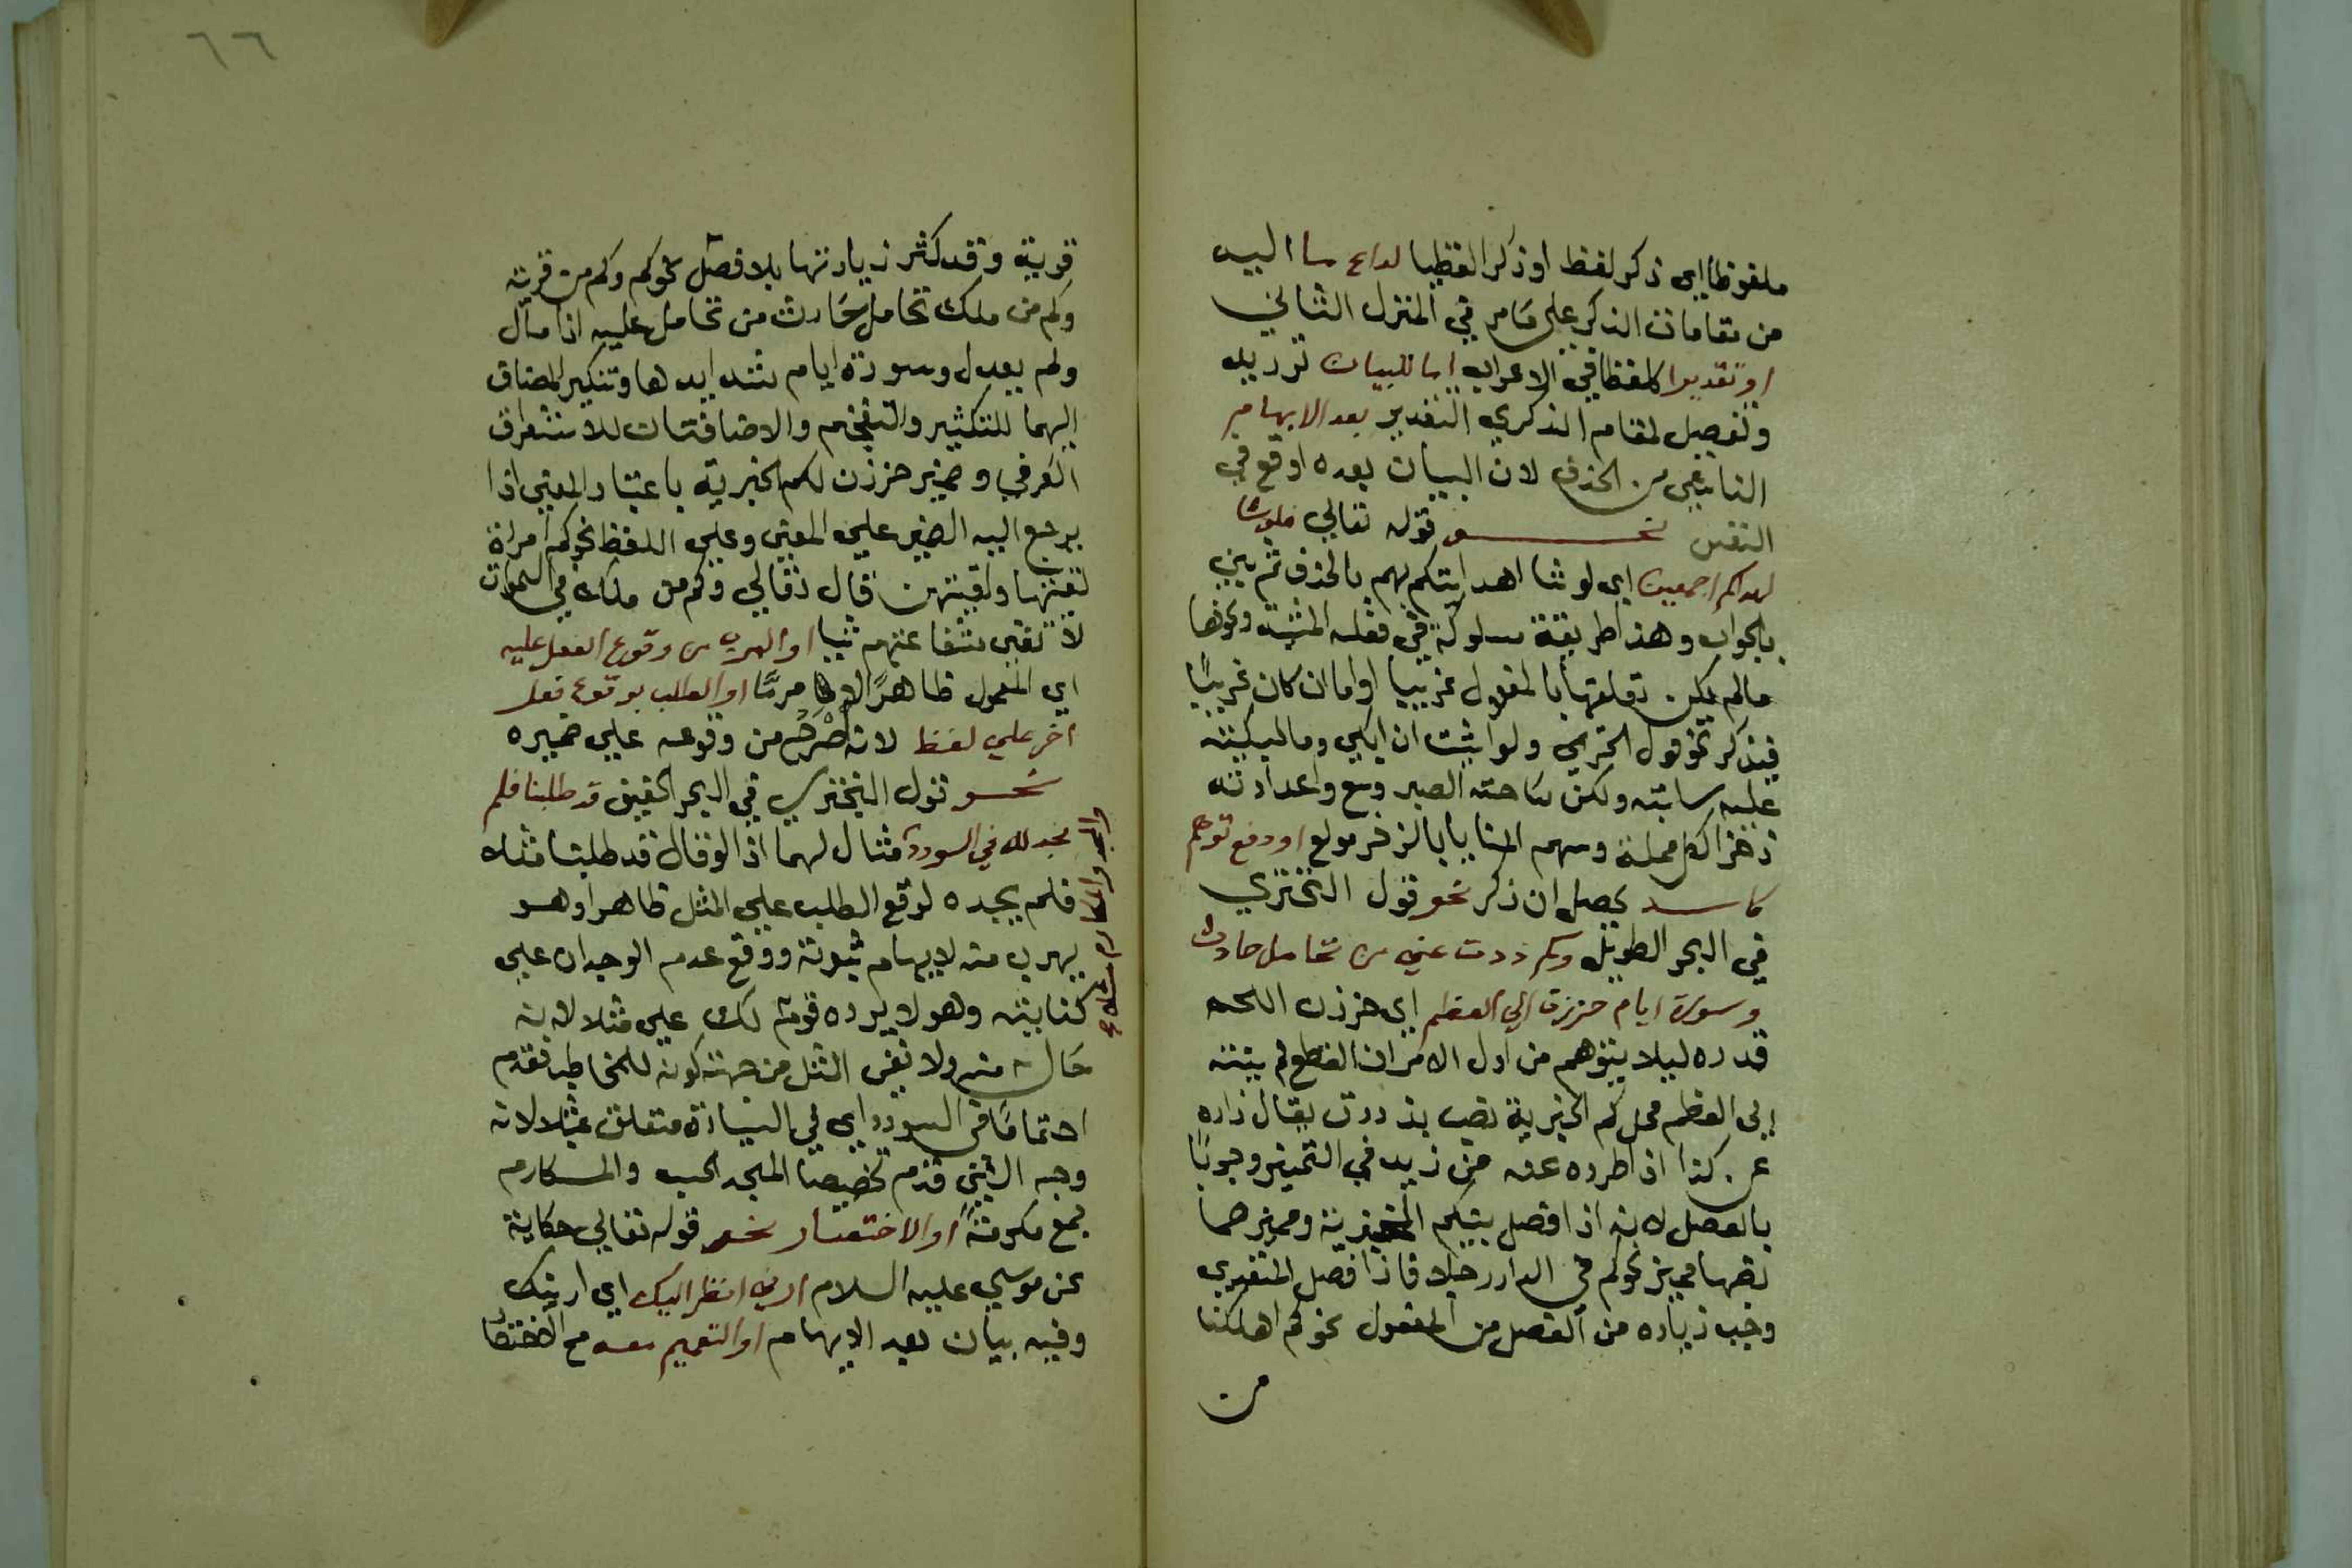 ملفوظا اي ذكر لفظ او ذكرا لفظيا لداع ما اليه
من مقامات الذكر على مامر في المنزل الثاني
او تقديرا كلفظا في الاعراب اما للبيان ترديد
وتفصيل لمقام الذكري التقدير بعد الابهام
الناشي من الحذف لان البيان بعده اوقع في
النفس نحو قوله تعالي فلو شا
لهداكم اجمعين اي لو شا اهدايتكم بهم بالحذف ثم بين
بالجواب وهذا طريقة مسلوكة في فعل المشية ونحوها
مالم يكن تعلقها بالمفعول غريبا او اما ان كان غريبًا
فيذكر نحو قول الخزيمي ولو اشيت ان ابكي دما لبكيته
عليه ساحته ولكن ساحته الصبر وسع واعدادته
ذخرا لكل مملة وسهم المنايا بالزخر مولع او دفع توهم
كاسد يحصل ان ذكر نحو قول البختري
في البحر الطويل وكم ذدت عني من تحامل حادث
وسورة ايام حززن الي العظم اي حززن اللحم
قدره ليلا يتوهم من اول الامر ان القطع لم ينته
الى العظم محل كم الخبرية نصب بذدت يقال زاده
عن كذا اذا طرده عنه من زيد في التمييز وجوبًا
بالفصل لانه اذا فصل بين كم الخبرية ومميزها
نصبها مميز نحو كم في الدار رجلا فاذا فصل المتعدي
وجب زياده من الفصل من المفعول نحو كم اهلكنا
من
٦٦
قرية وقد كثر زيادتها بلا فصل نحو كم وكم من قرية
وكم من ملك تحامل حادث من تحامل عليه اذا مال
ولم يعدل وسورة ايام شدايدها وتنكير المضاف
اليهما للتكثير والتفخيم والاضافتان للاستغراق
العرفي وضمير حززن لكم الخبرية باعتبار المعني اذا
يرجع اليه الضمير علي المعني وعلي اللفظ نحو كم امراة
لقيتها ولقيتهن قال تعالي وكم من ملك في السموات
لا تغني شفاعتهم شيا او الهرب من وقوع الفعل عليه
اي المفعول ظاهرًا لامر ما او الطلب بوقوع فعل
اخر علي لفظ لانه اصرح من وقوعه علي ضميره
نحو قول البختري في البحر الخفيف قد طلبنا فلم
نجد لك في السودد مثال لهما اذ الو قال قد طلبنا مثلك
والمجد والمكارم مثلا
فلم نجده لوقع الطلب علي المثل ظاهرا وهو
يهرب منه لايهام ثبوته ووقع عدم الوجدان علي
كنايته وهو لا يريده قوله لك علي مثلا لانه
حال منه ولا نفي المثل من جهة كونه للمخاطب فقدم
اهتماما في السودد اي في السيادة متعلق بمثلا لانه
وجه الشبه قدم تخصيصا المجد الحسب والمكارم
جمع مكرمة او الاختصار نحو قوله تعالي حكاية
عن موسي عليه السلام ارني انظر اليك اي ارني ذاتك
وفيه بيان بعد الابهام او التعميم معه مع الاختصار